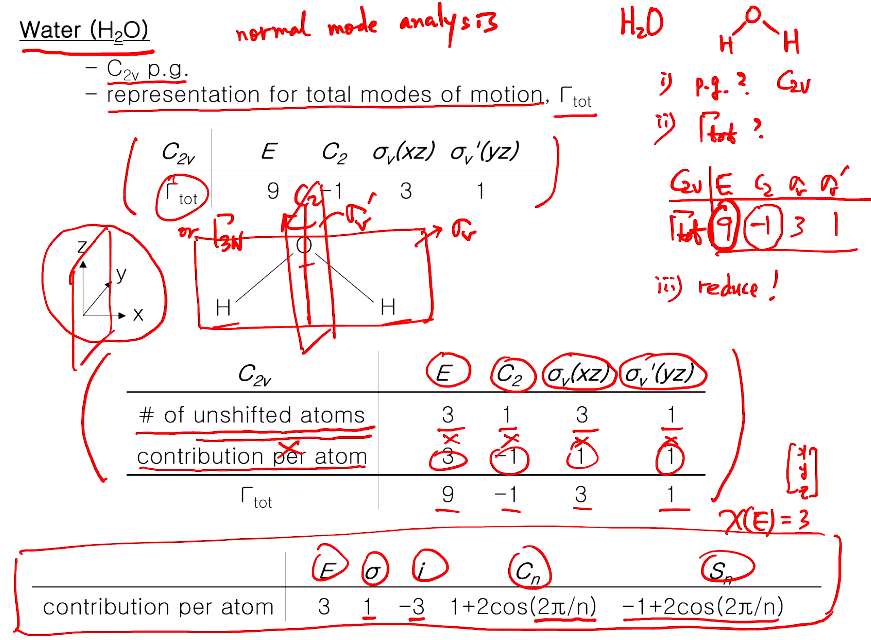 Water (H₂O)
normal mode analysis
H₂O
O
H H
– C₂ᵥ p.g.
– representation for total modes of motion, Γtot
i) p.g. ? C₂ᵥ
ii) Γtot ?
C₂ᵥ E C₂ σᵥ(xz) σᵥ'(yz)
Γtot 9 -1 3 1
C₂ᵥ E C₂ σᵥ σᵥ'
Γtot 9 -1 3 1
iii) reduce !
or Γ3N
C₂ σᵥ' σᵥ
z
y
x
O
H H
C₂ᵥ E C₂ σᵥ(xz) σᵥ'(yz)
# of unshifted atoms 3 1 3 1
× × × × ×
contribution per atom 3 -1 1 1
Γtot 9 -1 3 1
x
y
z
χ(E) = 3
E σ i Cₙ Sₙ
contribution per atom 3 1 -3 1+2cos(2π/n) -1+2cos(2π/n)